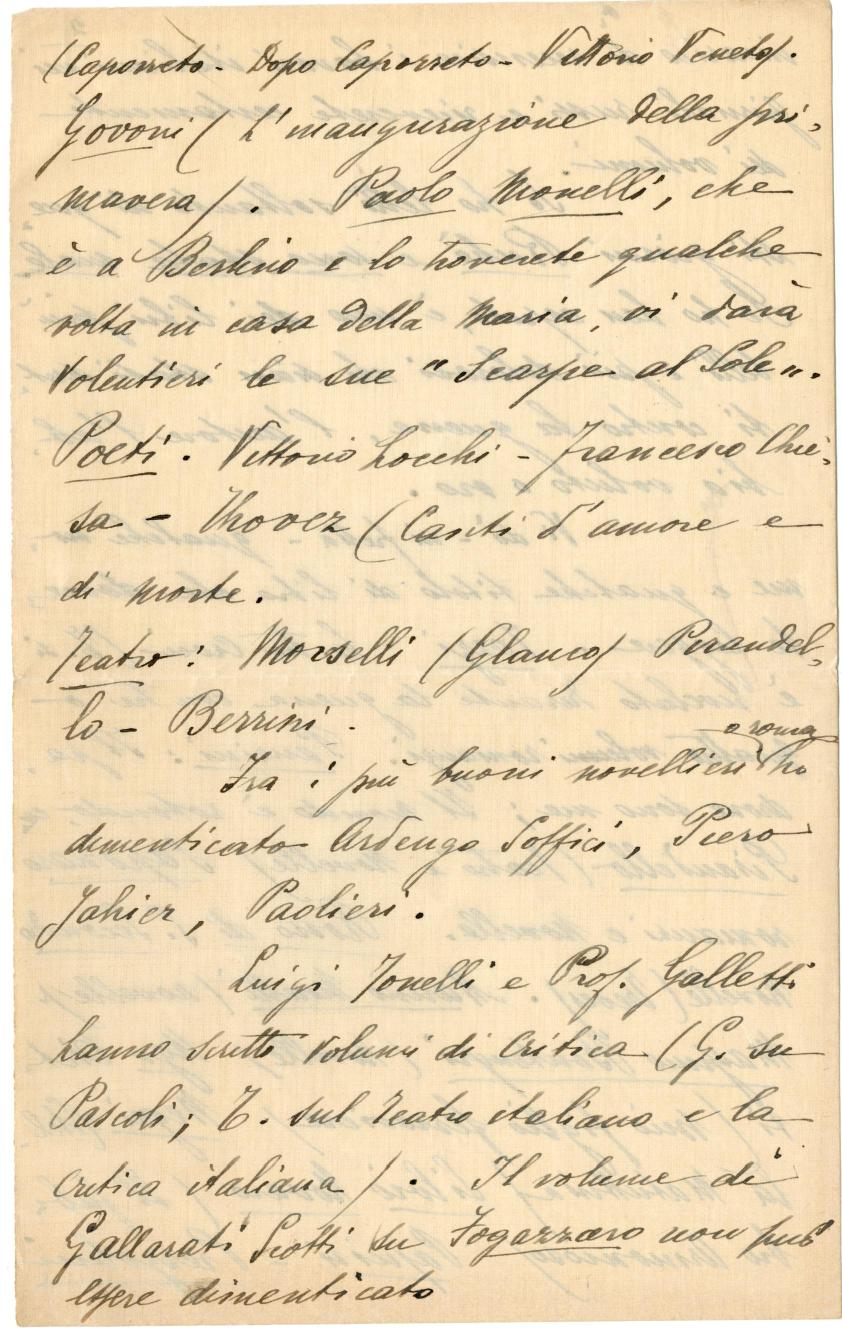 (Caporreto - Dopo Caporreto - Vittorio Veneto).
Govoni ( L'inaugurazione della pri-
mavera). Paolo Monelli, che
è a Berlino e lo troverete qualche
volta in casa della Maria, vi darà
volentieri le sue "Scarpe al Sole".
Poeti. Vittorio Locchi - Francesco Chie-
sa - Thovez (Canti d'amore e
di morte.
Teatro: Morselli (Glauco) Pirandel-
lo - Berrini -
o roma
Fra i più buoni novellieri ho
dimenticato Ardengo Soffici, Piero
Jahier, Paolieri.
Luigi Tonelli e Prof. Galletti
hanno scritto volumi di critica (G. su
Pascoli; T. sul teatro italiano e la
critica italiana). Il volume di
Gallarati Scotti su Fogazzaro non può
essere dimenticato